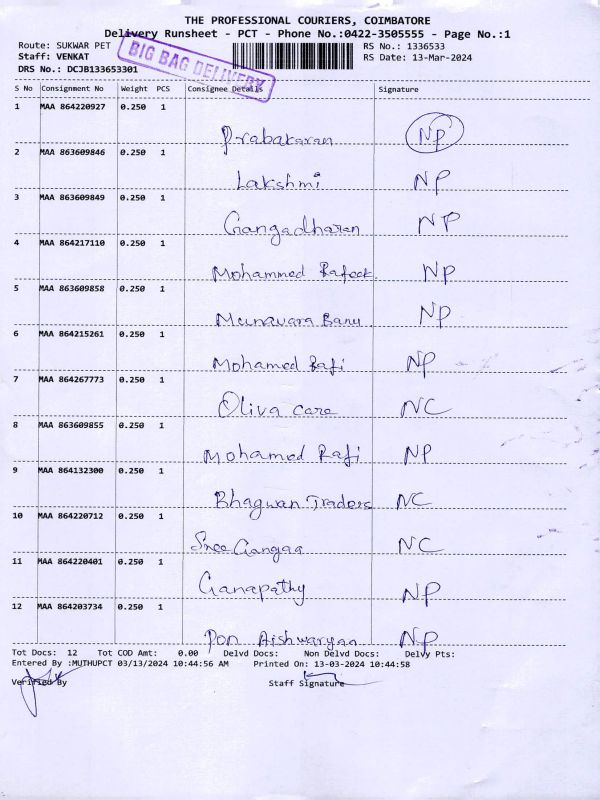 THE PROFESSIONAL COURIERS, COIMBATORE
Delivery Runsheet - PCT - Phone No.:0422-3505555 - Page No.:1
Route: SUKWAR PET RS No.: 1336533
Staff: VENKAT RS Date: 13-Mar-2024
DRS No.: DCJB133653301
BIG BAG DELIVERY
S No Consignment No Weight PCS Consignee Details Signature
1 MAA 864220927 0.250 1
Prabakaran NP
2 MAA 863609846 0.250 1
Lakshmi NP
3 MAA 863609849 0.250 1
Gangadharan NP
4 MAA 864217110 0.250 1
Mohammed Rafeek. NP
5 MAA 863609858 0.250 1
Munavara Banu NP
6 MAA 864215261 0.250 1
Mohamed Rafi NP
7 MAA 864267773 0.250 1
Oliva care NC
8 MAA 863609855 0.250 1
Mohamed Rafi NP
9 MAA 864132300 0.250 1
Bhagwan Traders NC
10 MAA 864220712 0.250 1
Sree Gangaa NC
11 MAA 864220401 0.250 1
Ganapathy NP
12 MAA 864203734 0.250 1
Pon Aishwaryaa NP
Tot Docs: 12 Tot COD Amt: 0.00 Delvd Docs: Non Delvd Docs: Delvy Pts:
Entered By :MUTHUPCT 03/13/2024 10:44:56 AM Printed On: 13-03-2024 10:44:58
Verified By Staff Signature